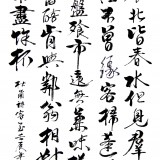 北皆春水但見群
不曾緣客掃蓬
盤飧市遠無兼味
醅肯與鄰翁相對
盡餘杯
杜甫詩客至